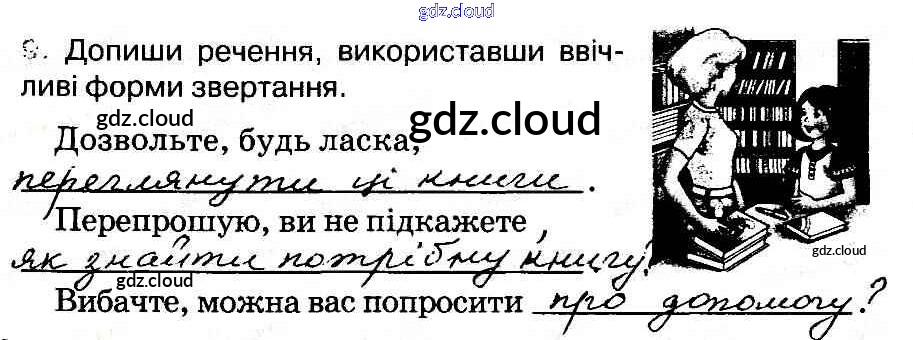 gdz.cloud
9. Допиши речення, використавши ввіч-
ливі форми звертання.
gdz.cloud
gdz.cloud
Дозвольте, будь ласка,
gdz.cloud
переглянути ці книги.
Перепрошую, ви не підкажете,
gdz.cloud
як знайти потрібну книгу?
gdz.cloud
gdz.cloud
Вибачте, можна вас попросити про допомогу?